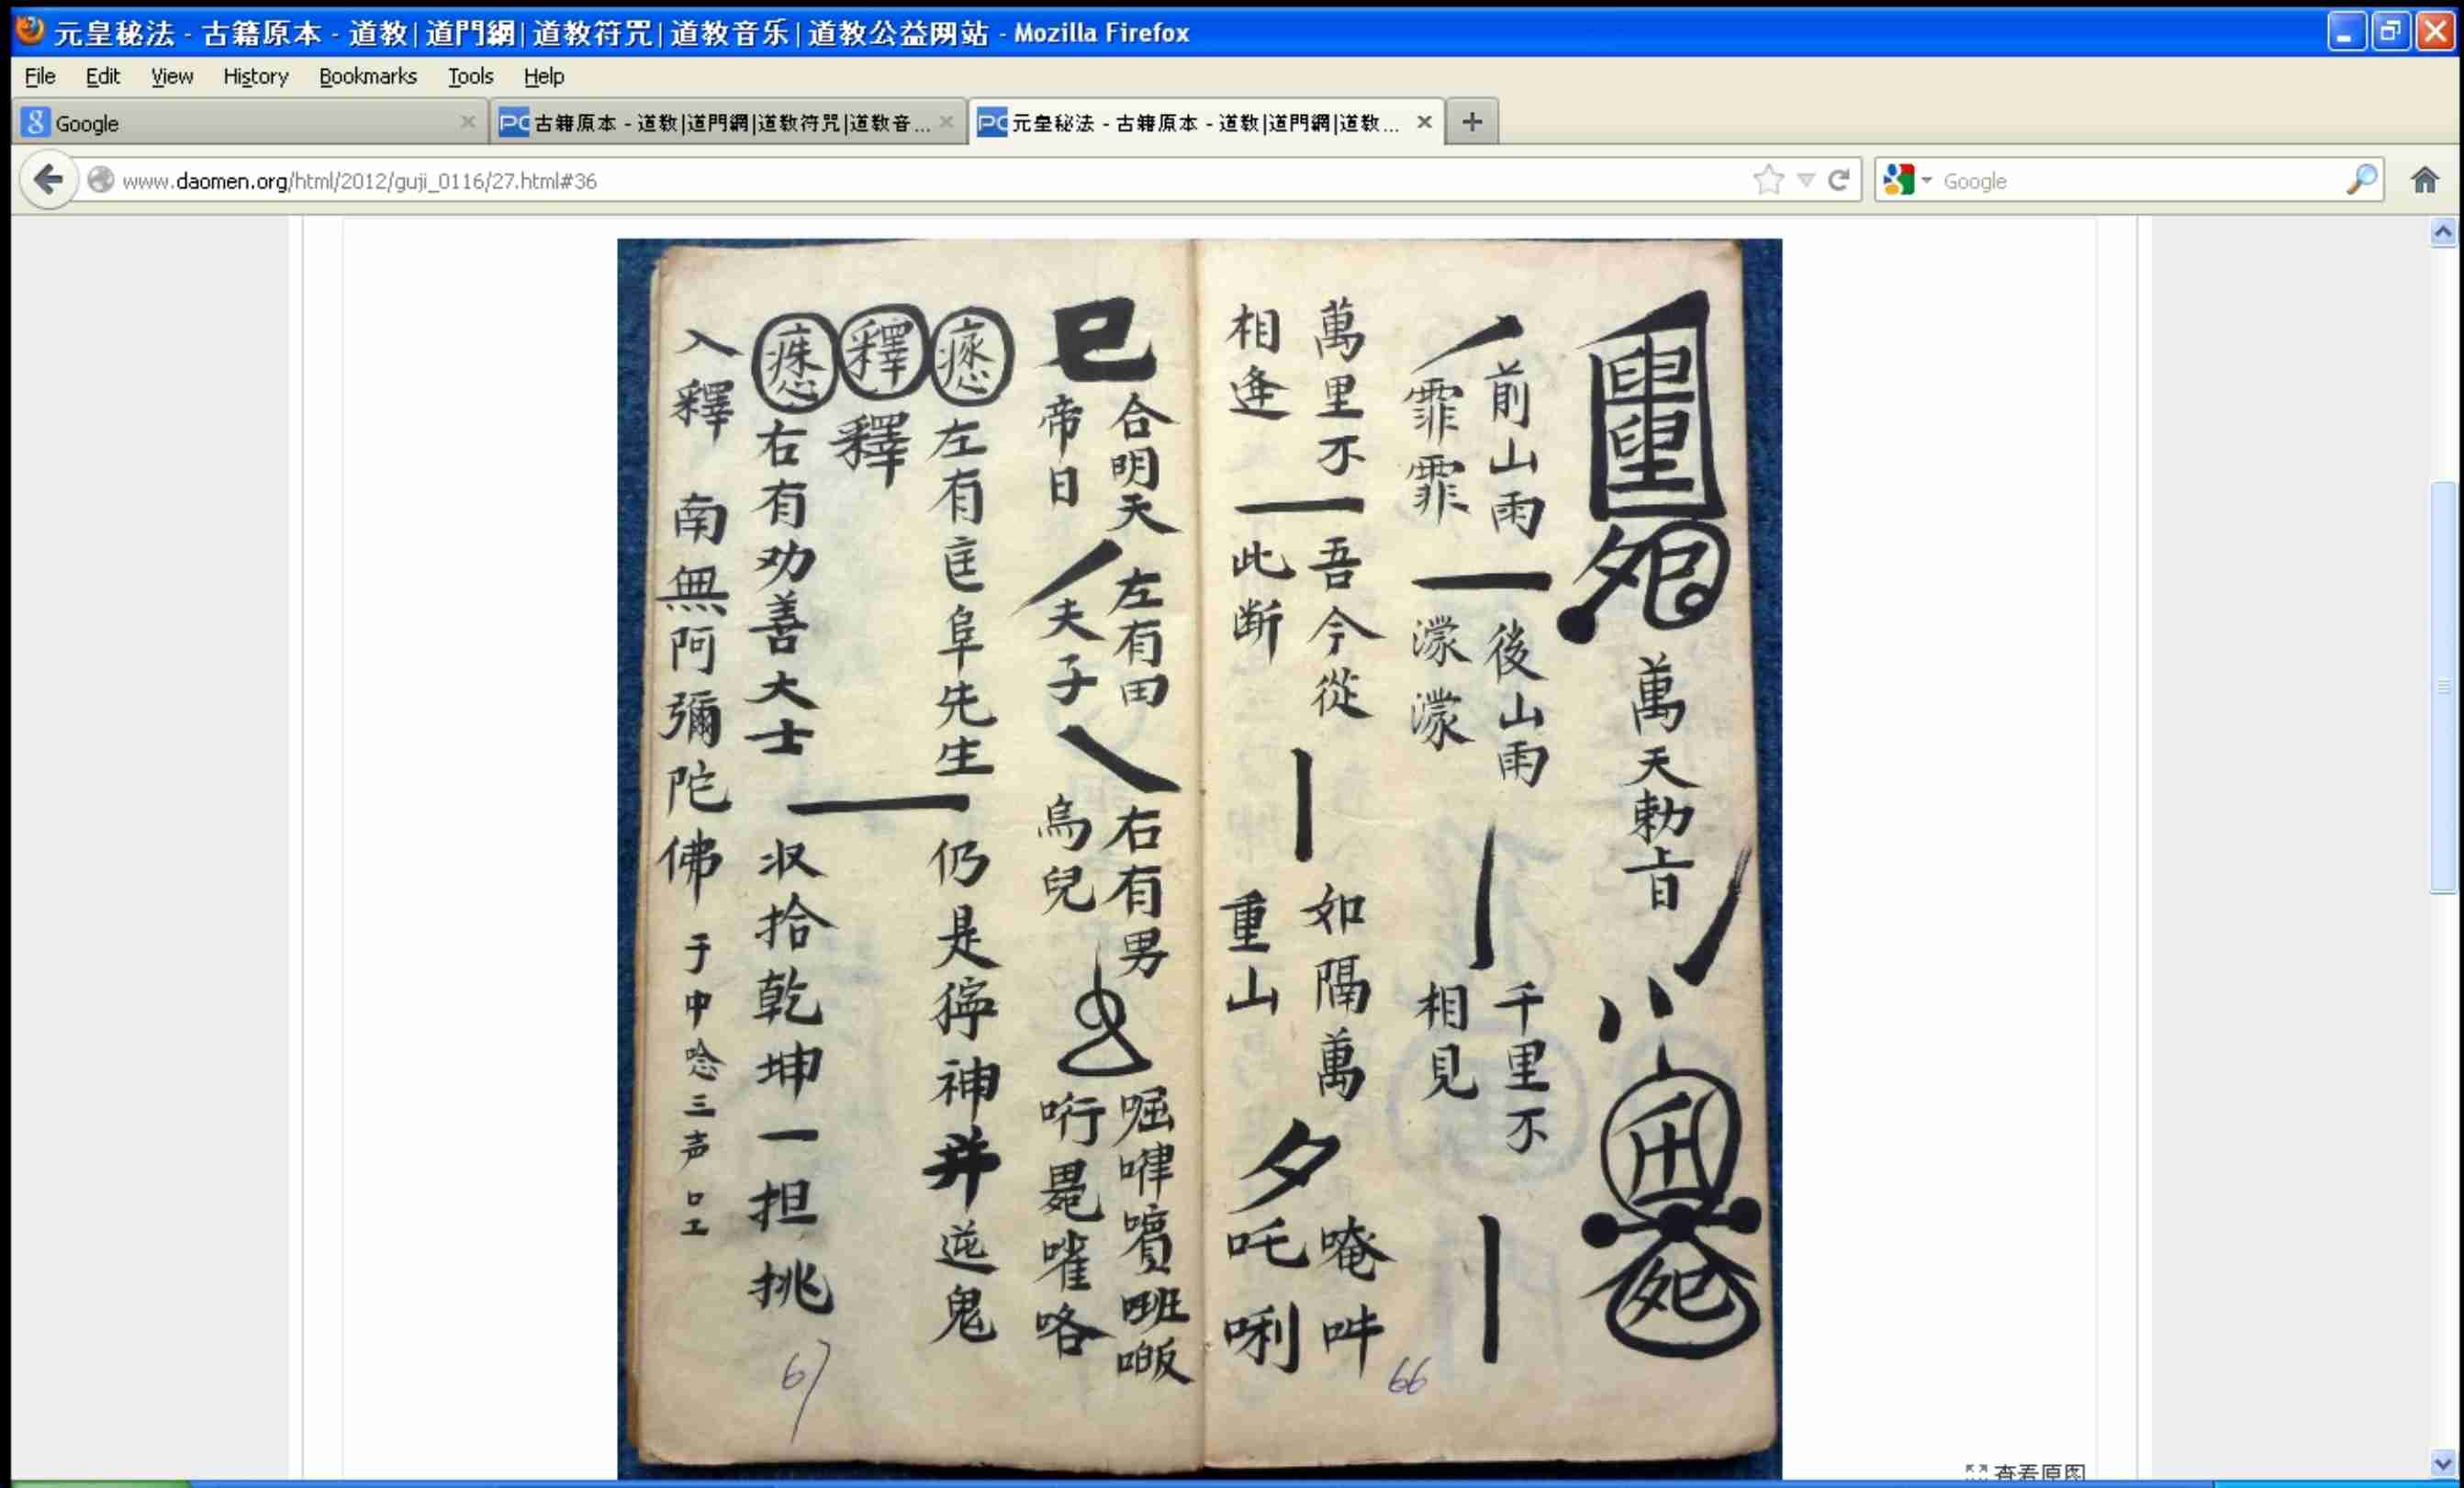 元皇秘法 - 古籍原本 - 道教|道門網|道教符咒|道教音乐|道教公益网站 - Mozilla Firefox
File Edit View History Bookmarks Tools Help
Google
古籍原本 - 道教|道門網|道教符咒|道教音...
元皇秘法 - 古籍原本 - 道教|道門網|道教...
www.daomen.org/html/2012/guji_0116/27.html#36
Google
萬天勅旨
前山雨
霏霏
後山雨
濛濛
千里不
相見
萬里不
相逢
吾今從
此断
如隔萬
重山
唵吽
吒唎
合明天
帝日
左有田
夫子
右有男
烏兒
左有
阜先生
仍是
神并逆鬼
釋
釋
右有劝善大士
収拾乾坤一担挑
入釋 南無阿彌陀佛 于中唸三声
66
67
查看原图